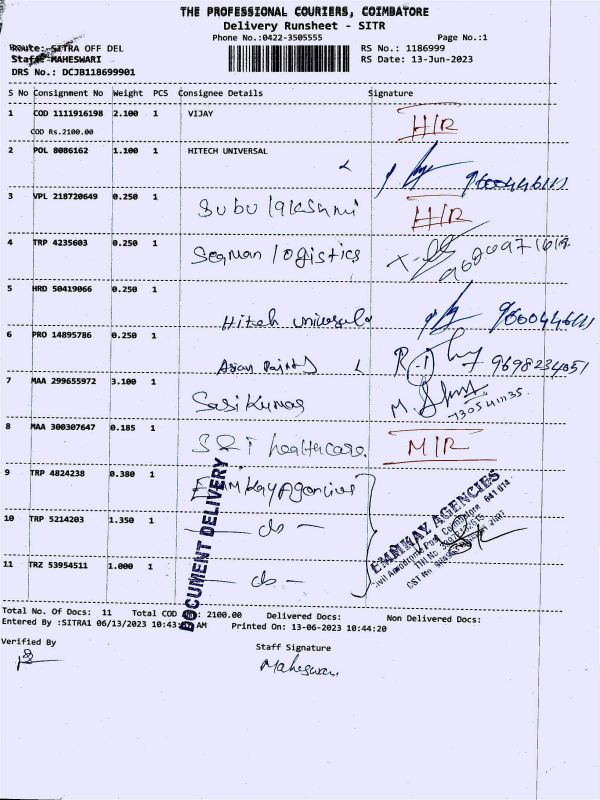 THE PROFESSIONAL COURIERS, COIMBATORE
Delivery Runsheet - SITR
Phone No.:0422-3505555 Page No.:1
Route: SITRA OFF DEL RS No.: 1186999
Staff: MAHESWARI RS Date: 13-Jun-2023
DRS No.: DCJB118699901
S No Consignment No Weight PCS Consignee Details Signature
1 COD 1111916198 2.100 1 VIJAY H/R
COD Rs.2100.00
2 POL 8086162 1.100 1 HITECH UNIVERSAL 9600446111
3 VPL 218720649 0.250 1 Subulakshmi H/R
4 TRP 4235603 0.250 1 Seaman logistics
5 HRD 50419066 0.250 1 Hitech universal 9600446111
6 PRO 14895786 0.250 1 Asian Paints 9698234051
7 MAA 299655972 3.100 1 Sasikumar
8 MAA 300307647 0.185 1 S&T healthcare. M/R
9 TRP 4824238 0.380 1 EMM Kay Agencies
10 TRP 5214203 1.350 1 — do —
11 TRZ 53954511 1.000 1 — do —
DOCUMENT DELIVERY
EMMKAY AGENCIES
Civil Aerodrome Post, Coimbatore 641 014
TIN No
CST No
Total No. Of Docs: 11 Total COD 2100.00 Delivered Docs: Non Delivered Docs:
Entered By :SITRA1 06/13/2023 10:43 AM Printed On: 13-06-2023 10:44:20
Verified By Staff Signature
Maheswari.